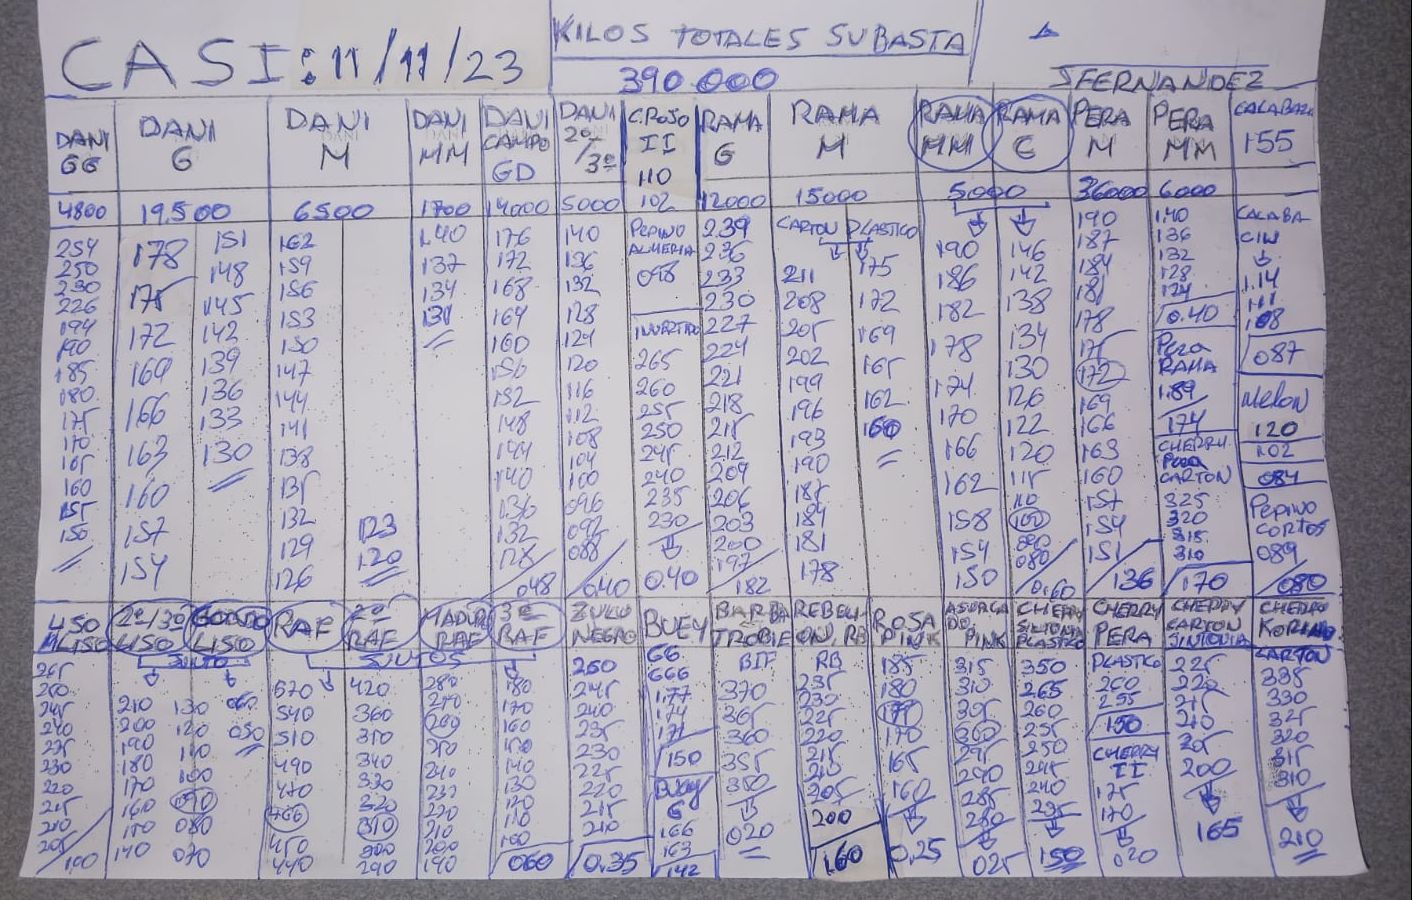 CASI: 11/11/23
KILOS TOTALES SUBASTA
390.000
JFERNANDEZ
DANI GG
DANI G
DANI M
DANI MM
DANI CAMPO GD
DANI 2ª/3ª
C.ROJO II 110
RAMA G
RAMA M
RAMA MM
RAMA C
PERA M
PERA MM
CALABAZA 155
4800
19.500
6500
1700
14000
5000
102
12000
15000
5000
36000
6000
254
250
230
226
194
190
185
180
175
170
165
160
155
150
178
175
172
169
166
163
160
157
154
151
148
145
142
139
136
133
130
162
159
156
153
150
147
144
141
138
135
132
129
126
123
120
140
137
134
131
176
172
168
164
160
156
152
148
144
140
136
132
128
048
140
136
132
128
124
120
116
112
108
104
100
096
092
088
0.40
PEPINO
ALMERIA
098
INVERTIDO
265
260
255
250
245
240
235
230
0.40
239
236
233
230
227
224
221
218
215
212
209
206
203
200
197
182
CARTON
211
208
205
202
199
196
193
190
187
184
181
178
PLASTICO
175
172
169
165
162
160
190
186
182
178
174
170
166
162
158
154
150
146
142
138
134
130
126
122
120
115
110
100
090
080
0.60
190
187
184
181
178
175
172
169
166
163
160
157
154
151
136
140
136
132
128
124
0.40
PERA
RAMA
1.89
174
CHERRY
PERA
CARTON
325
320
315
310
170
CALABA
CIN
1.14
111
108
087
MELON
120
102
084
PEPINO
CORTOS
089
080
450
M LISO
265
260
245
240
235
230
220
215
210
205
100
2ª/3ª
LISO
GORDO
LISO
JUNTO
210
200
190
180
170
160
150
140
130
120
110
100
090
080
070
060
050
RAF
2ª
RAF
MADUR
RAF
3ª
RAF
JUNTOS
570
540
510
490
470
466
450
440
420
360
350
340
330
320
310
300
290
280
270
260
250
240
230
220
210
200
190
180
170
160
150
140
130
120
110
100
060
ZULU
NEGRO
260
245
240
235
230
225
220
215
210
0,35
BUEY
GG
666
1.77
174
171
150
BUEY
G
166
163
142
BARBA
TROBIE
BIF
370
365
360
355
350
020
REBELI
ON RB
RB
235
230
225
220
215
210
205
200
160
ROSA
PINK
185
180
175
170
165
160
0,25
ASURCA
DO
PINK
315
310
305
300
295
290
285
280
025
CHERRY
SINTONIA
PLASTICO
350
265
260
255
250
245
240
235
150
CHERRY
PERA
PLASTICO
260
255
150
CHERRY
II
175
170
020
CHERRY
CARTON
SINTONIA
225
220
215
210
205
200
165
CHERRY
KORINO
CARTON
335
330
325
320
315
310
210